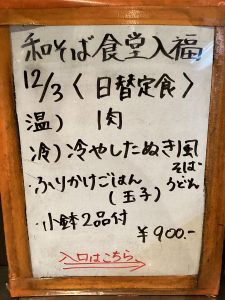 和そば食堂入福
12/3〈日替定食〉
温) 肉
冷)冷やしたぬき風
そば
うどん
・ふりかけごはん
(玉子)
・小鉢2品付
¥900.-
入口はこちら